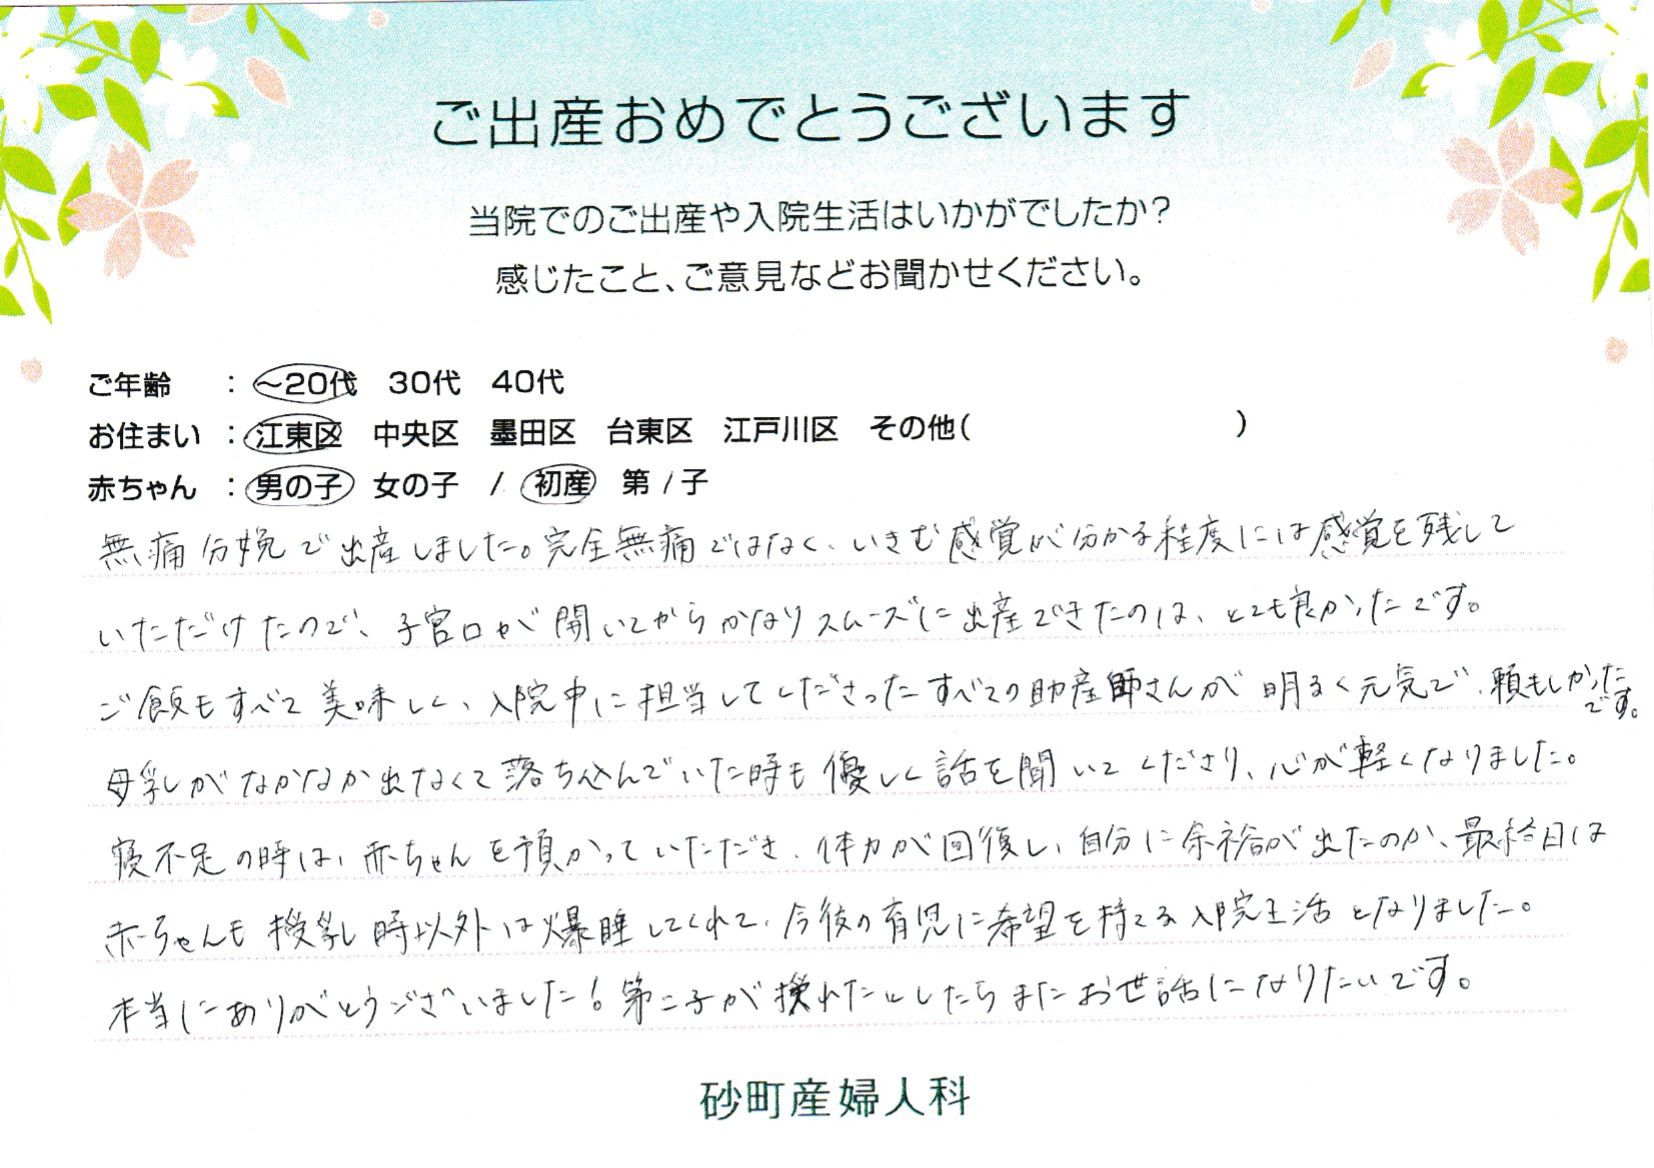 ご出産おめでとうございます
当院でのご出産や入院生活はいかがでしたか?
感じたこと、ご意見などお聞かせください。
ご年齢 : ～20代 30代 40代
お住まい : 江東区 中央区 墨田区 台東区 江戸川区 その他( )
赤ちゃん : 男の子 女の子 / 初産 第 / 子
無痛分娩で出産しました。完全無痛ではなく、いきむ感覚が分かる程度には感覚を残して
いただけたので、子宮口が開いてからかなりスムーズに出産できたのは、とても良かったです。
ご飯もすべて美味しく、入院中に担当してくださったすべての助産師さんが明るく元気で、頼もしかった
です。
母乳がなかなか出なくて落ち込んでいた時も優しく話を聞いてくださり、心が軽くなりました。
寝不足の時は、赤ちゃんを預かっていただき、体力が回復し、自分に余裕が出たのか、最終日は
赤ちゃんも授乳時以外は爆睡してくれて、今後の育児に希望を持てる入院生活となりました。
本当にありがとうございました!第二子が授れたとしたらまたお世話になりたいです。
砂町産婦人科